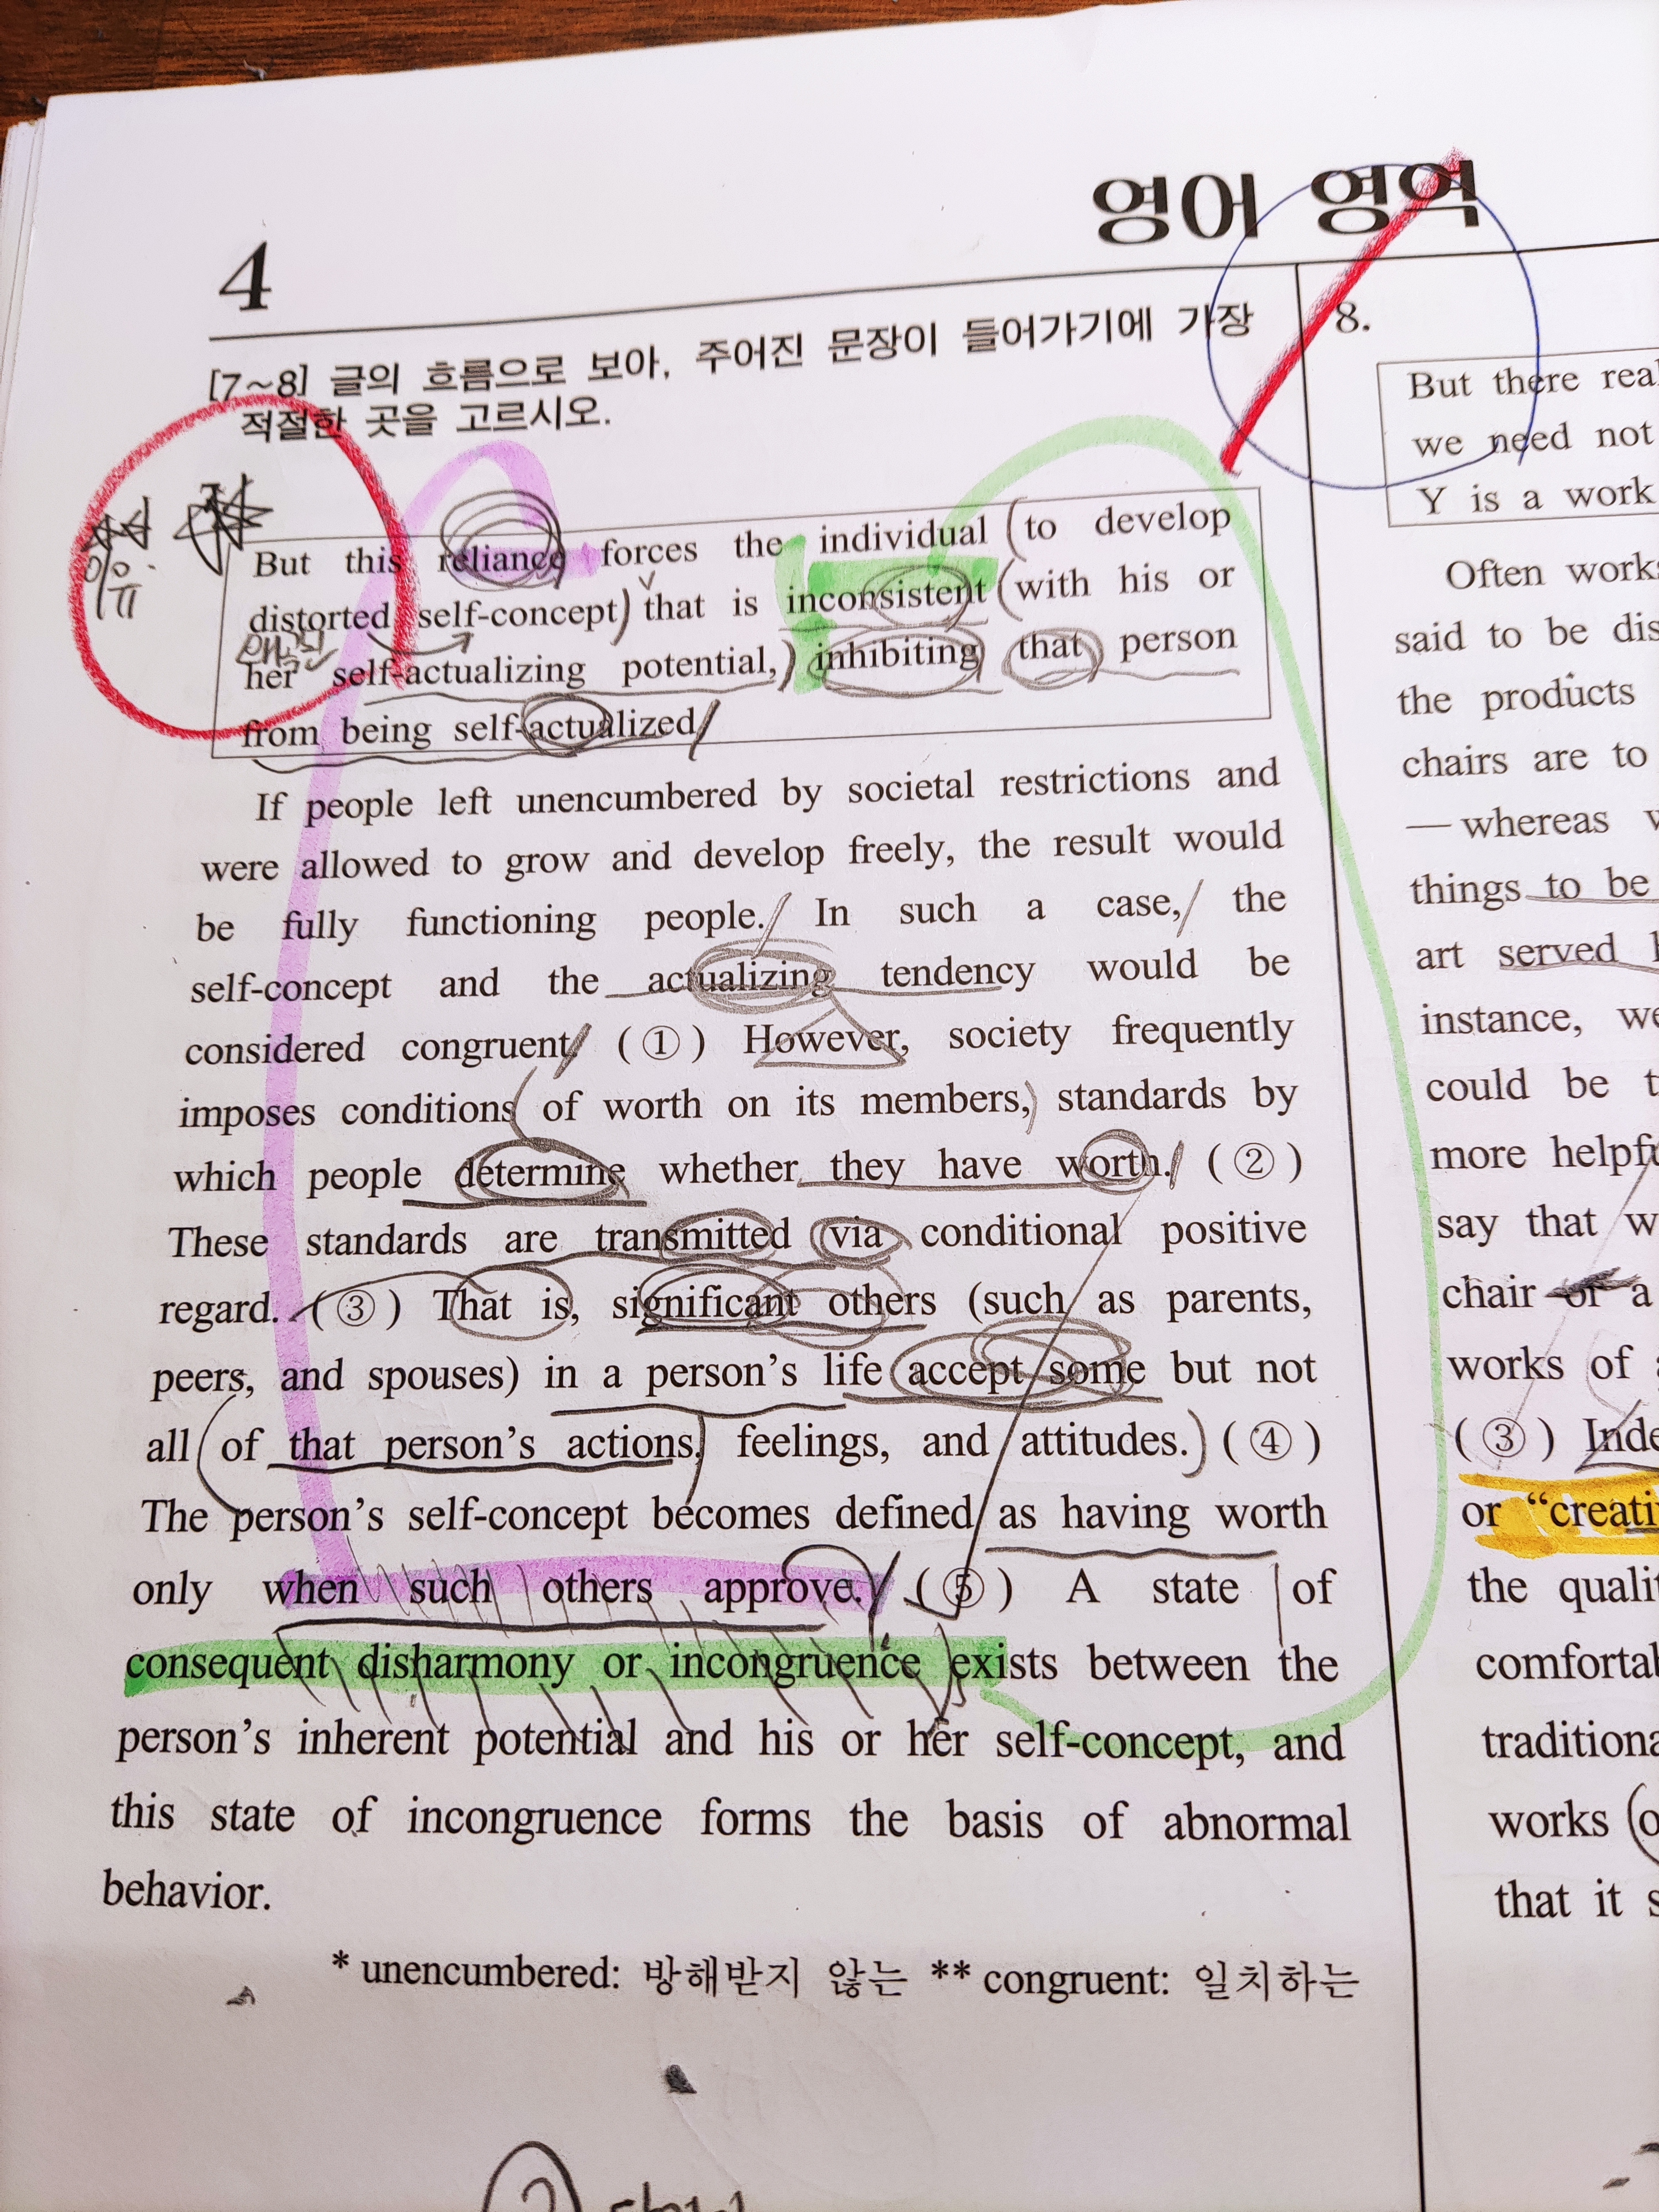 영어 영역
4
[7~8] 글의 흐름으로 보아, 주어진 문장이 들어가기에 가장
적절한 곳을 고르시오.
But this reliance forces the individual to develop
distorted self-concept that is inconsistent with his or
her self-actualizing potential, inhibiting that person
from being self-actualized.
If people left unencumbered by societal restrictions and
were allowed to grow and develop freely, the result would
be fully functioning people. In such a case, the
self-concept and the actualizing tendency would be
considered congruent. ( ① ) However, society frequently
imposes conditions of worth on its members, standards by
which people determine whether they have worth. ( ② )
These standards are transmitted via conditional positive
regard. ( ③ ) That is, significant others (such as parents,
peers, and spouses) in a person's life accept some but not
all of that person's actions, feelings, and attitudes. ( ④ )
The person's self-concept becomes defined as having worth
only when such others approve. ( ⑤ ) A state of
consequent disharmony or incongruence exists between the
person's inherent potential and his or her self-concept, and
this state of incongruence forms the basis of abnormal
behavior.
* unencumbered: 방해받지 않는 ** congruent: 일치하는
8.
But there real
we need not
Y is a work
Often works
said to be dis
the products
chairs are to
— whereas w
things to be
art served
instance, we
could be t
more helpfu
say that w
chair or a
works of a
( ③ ) Inde
or “creati
the qualit
comfortab
traditiona
works (o
that it s